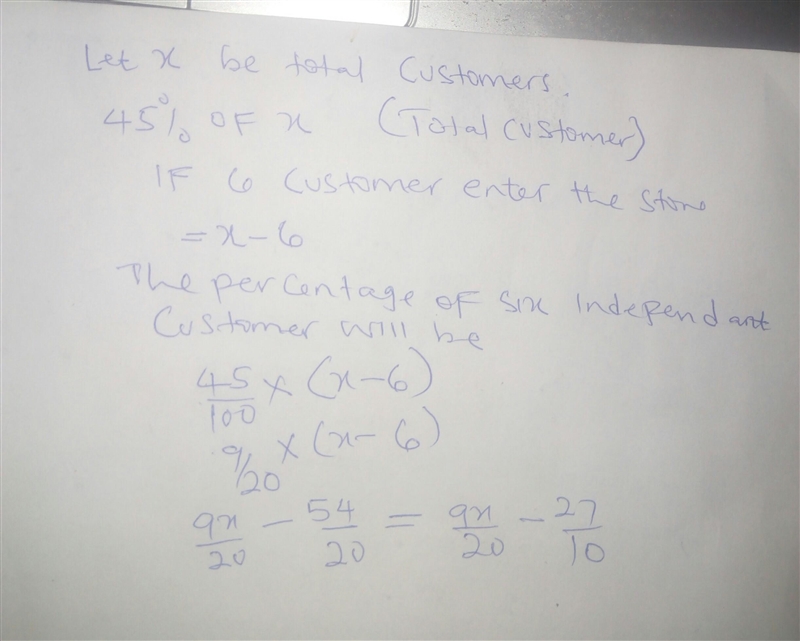 Let x be total Customers.
45% OF x (Total Customer)
IF 6 Customer enter the store
= x - 6
The percentage of six Independant
Customer will be
45/100 × (x - 6)
9/20 × (x - 6)
9x/20 - 54/20 = 9x/20 - 27/10